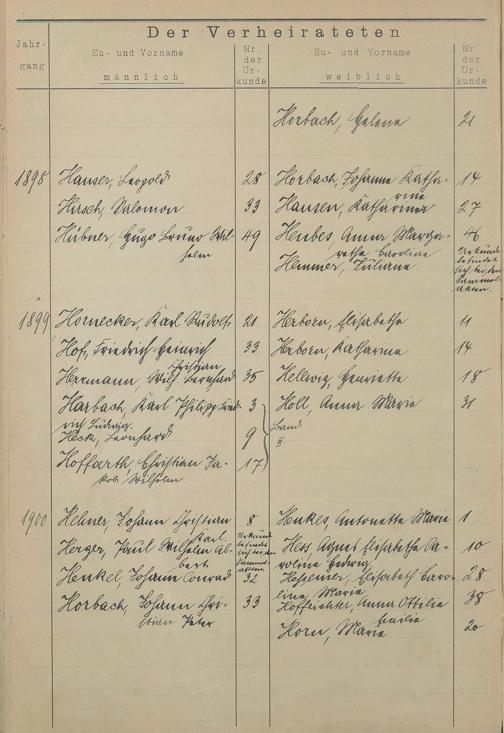 Der Verheirateten
Jahr-
gang
Zu- und Vorname
männlich
Nr.
der
Ur-
kunde
Zu- und Vorname
weiblich
Nr.
der
Ur-
kunde
Horbach, Helene 21
1898 Hauser, Leopold 28 Horbach, Johanna Katha-
rina 14
Hirsch, Salomon 33 Hausen, Katharina 27
Hübner, Hugo Bruno Wil-
helm 49 Henbes, Anna Marga-
retha Caroline 46
Hemmer, Juliane Urkunde
befindet
sich bei den
Sammel-
akten.
1899 Hornecker, Karl Rudolf 21 Herborn, Elisabetha 11
Hof, Friedrich Heinrich
Christian 33 Herborn, Katharina 14
Herrmann, Wilh. Bernhard 35 Hellwig, Henriette 18
Harbach, Karl Philipp Fried-
rich Ludwig. 3 Holl, Anna Maria 31
Heck, Leonhard 9 Band
II.
Hoffarth, Christian Ja-
kob Wilhelm 17
1900 Hehner, Johann Christian
Karl 8 Henkes, Antonetta Maria 1
Herger, Paul Wilhelm Al-
bert Urkunde
befindet
sich bei den
Sammel-
akten Hess, Agnes Elisabetha Ca-
roline Hedwig 10
Henkel, Johann Conrad 32 Hessemer, Elisabeth Caro-
line Maria 28
Horbach, Johann Chri-
stian Peter 33 Hoffrichter, Anna Ottilie
Emilie 38
Horn, Maria 20